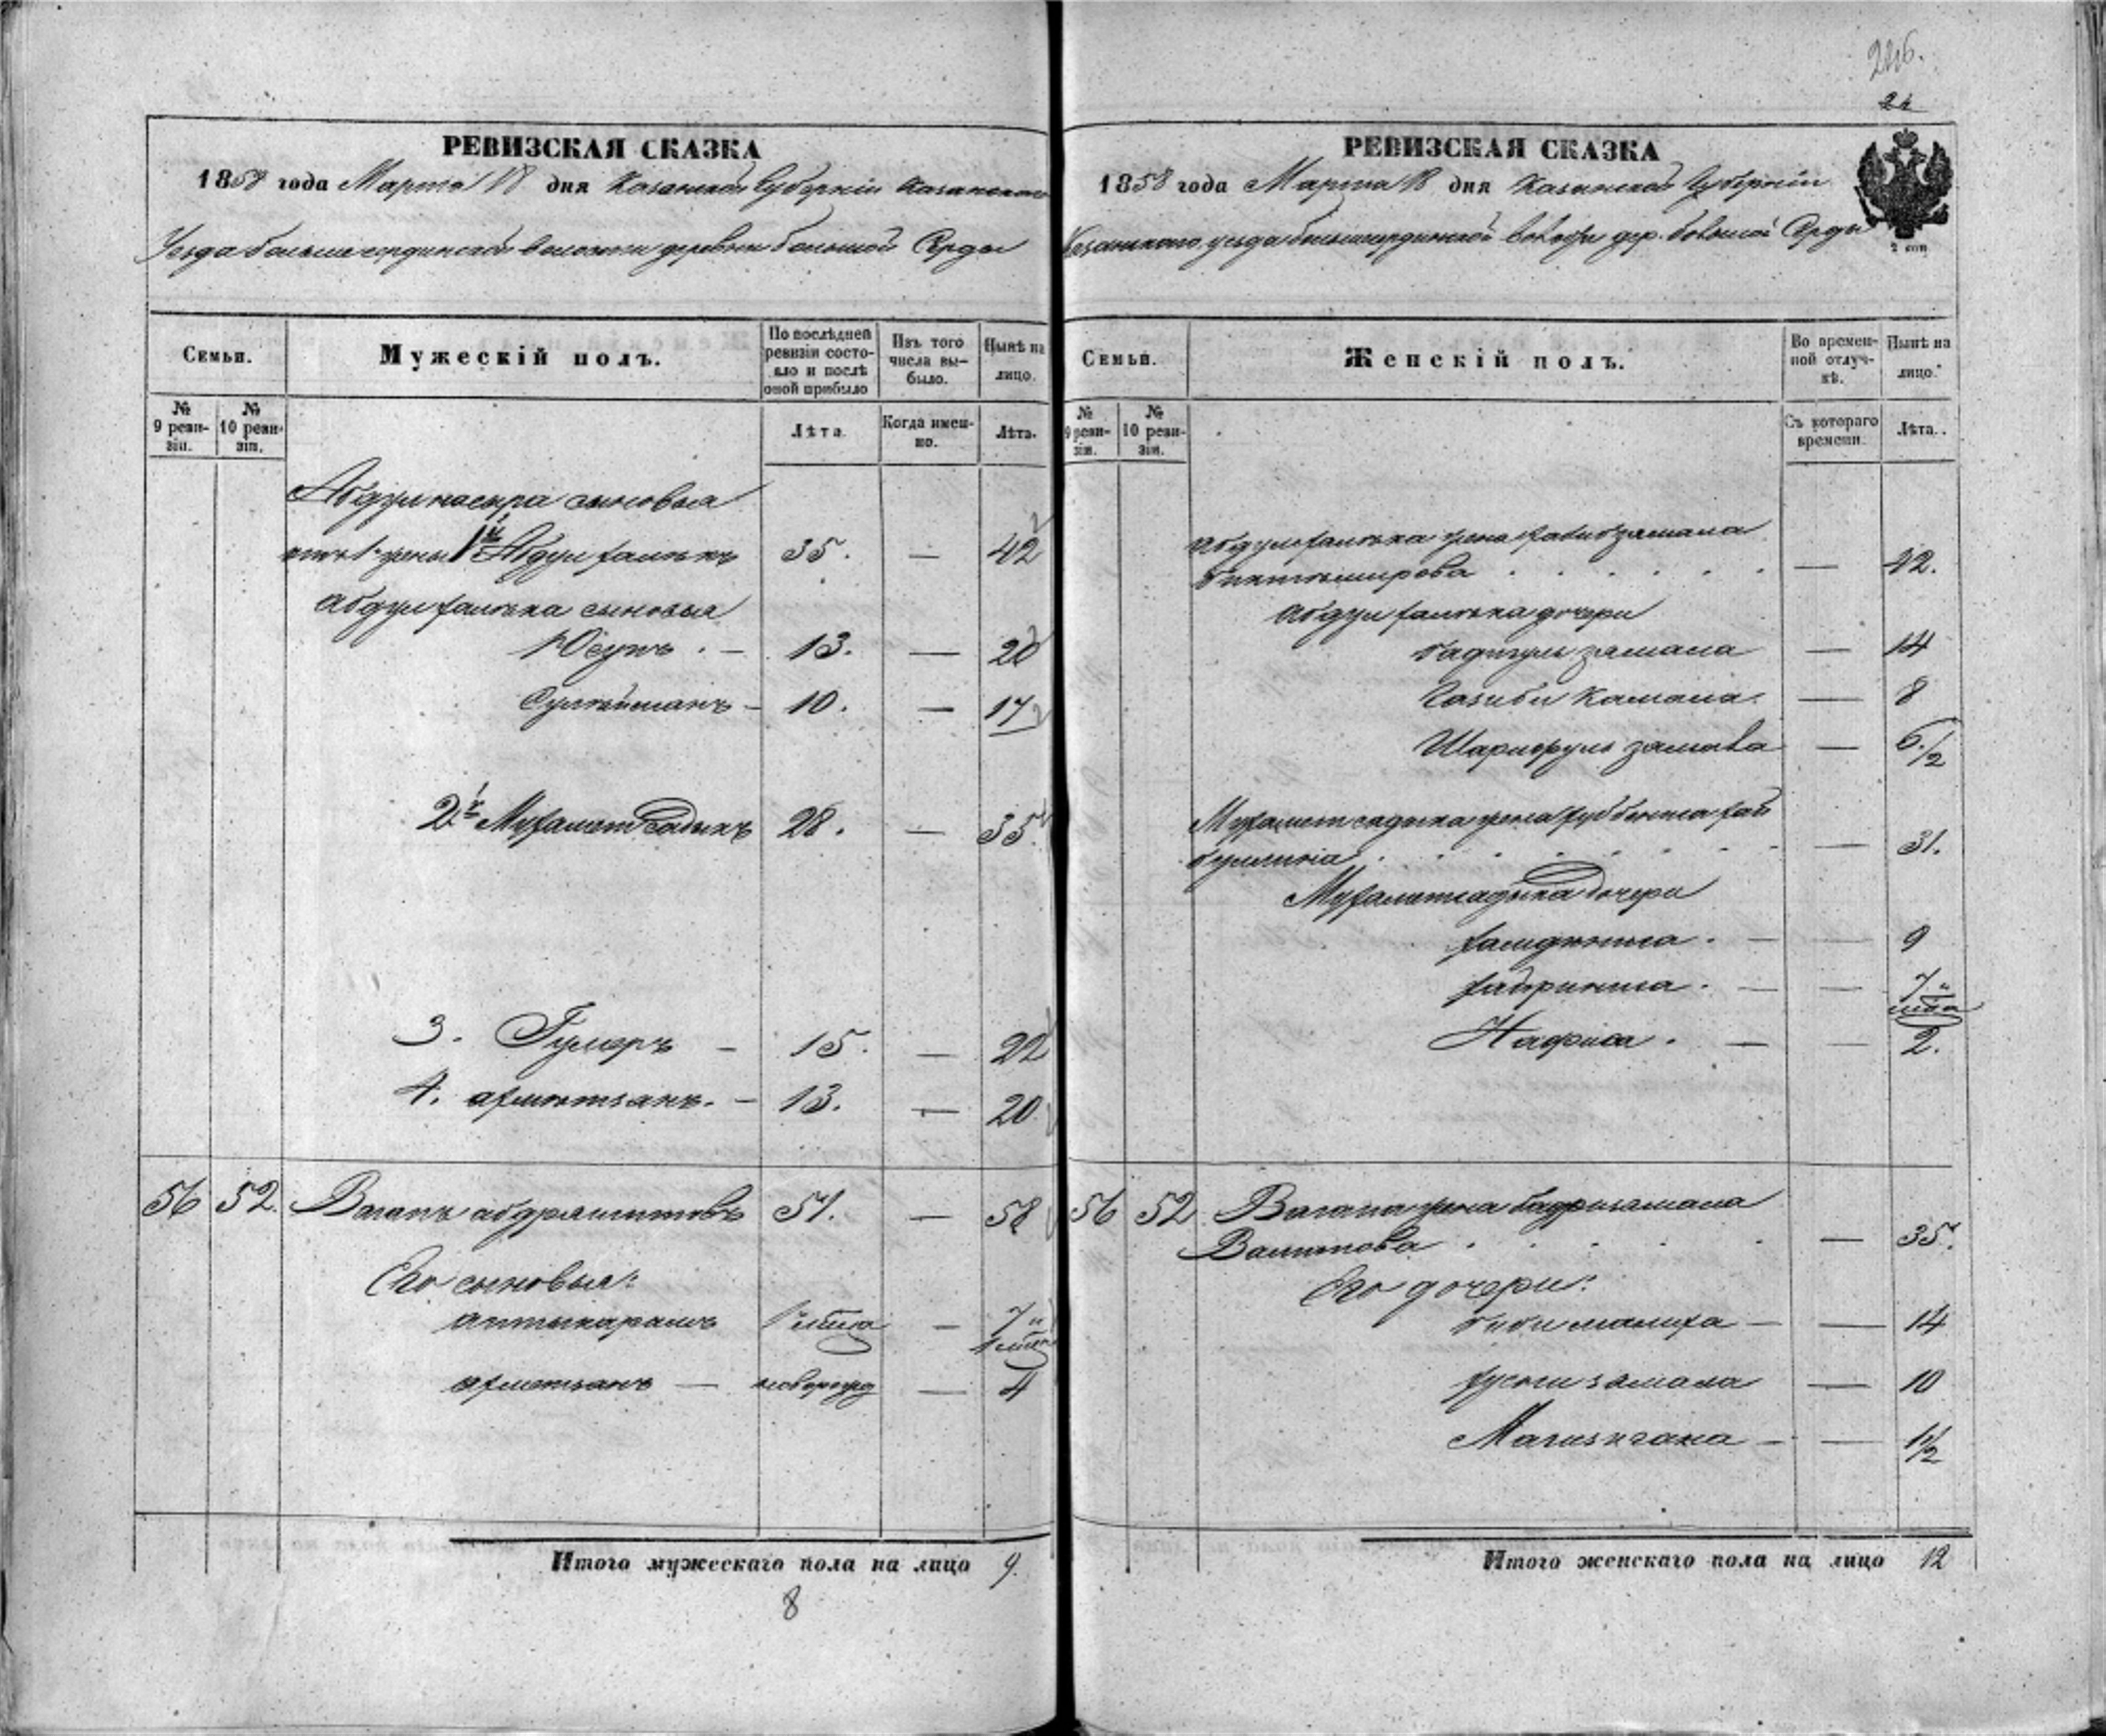 РЕВИЗСКАЯ СКАЗКА
1858 года Марта 18 дня Казанской Губерніи Казанскаго
Уезда большесердинской волости деревни большой Серды
Семьи.
Мужескій полъ.
По послѣдней ревизіи состояло и послѣ оной прибыло
Изъ того числа выбыло.
Нынѣ на лицо.
№ 9 ревизіи.
№ 10 ревизіи.
Лѣта.
Когда именно.
Лѣта.
Абдулнасыра сыновья
1й Абдулхаликъ 35. — 42
Абдулхалика сыновья
Юсупъ . — 13. — 20
Сулейманъ — 10. — 17
2й Мухаметсадыкъ 28. — 35
3. Гумеръ — 15. — 22
4. ахметзянъ. — 13. — 20
56 52. Вагапъ абдрашитовъ 51. — 58
Его сыновья:
аптыкарамъ — 7
ахметзянъ — новорожд — 4
Итого мужескаго пола на лицо 9.
8
226.
24
РЕВИЗСКАЯ СКАЗКА
1858 года Марта 18 дня Казанской Губерніи
Казанскаго уезда большесердинской волости дер. большой Серды
2 коп
Семьи.
Женскій полъ.
Во временной отлучкѣ.
Нынѣ на лицо.
№ 9 ревизіи.
№ 10 ревизіи.
Съ котораго времени.
Лѣта.
Абдулхалика жена
биктимирова . . . . . . — 42.
Абдулхалика дочери
бадигульзямала — 14
Камала. — 8
Шарифульзямала — 6 1/2
Мухаметсадыка жена
— 31.
Мухаметсадыка дочери
хамдиниса . — — 9
— — 7
Нафиса . — — 2.
56 52 Вагапа жена бадризямала
Валитова . . . . — 35.
Его дочери:
биби малиха — — 14
хуснизямала — 10
— — 1 1/2
Итого женскаго пола на лицо 12